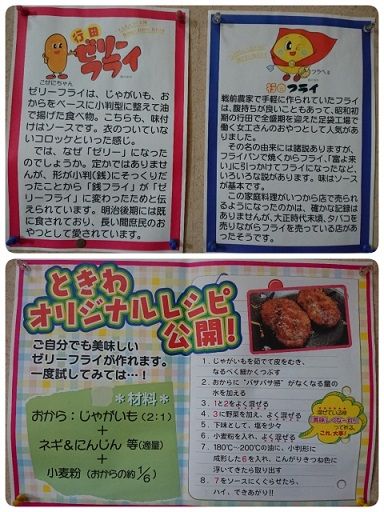 行田
ゼリー
フライ
こぜにちゃん
ゼリーフライは、じゃがいも、お
からをベースに小判型に整えて油
で揚げた食べ物。こちらも、味付
けはソースです。衣のついていな
いコロッケといった感じ。
では、なぜ「ゼリー」になった
のでしょうか。定かではありませ
んが、形が小判(銭)にそっくりだ
ったことから「銭フライ」が「ゼ
リーフライ」に変わったためと伝
えられています。明治後期には既
に食されており、長い間庶民のお
やつとして愛されています。
行田フライ
戦前農家で手軽に作られていたフライ
は、腹持ちが良いこともあって、昭和初
期の行田で全盛期を迎えた足袋工場で
働く女工さんのおやつとして人気があり
ました。
その名の由来には諸説ありますが、
フライパンで焼くからフライ、「富よ来
い」に引っかけてフライとなったなど、
いろいろな説があります。味はソースが
基本です。
この家庭料理がいつから店で売られ
るようになったのかは、確かな記録はあ
りませんが、大正時代末頃、タバコを
売りながらフライを売っている店があ
ったそうです。
ときわ
オリジナルレシピ
公開!
ご自分でも美味しい
ゼリーフライが作れます。
一度試してみては…!
*材料*
おから:じゃがいも(2:1)
+
ネギ&にんじん 等(適量)
+
小麦粉(おからの約1/6)
1.じゃがいもを茹でて皮をむき、
なるべく細かくつぶす
2.おからに"パサパサ感"がなくなる量の
水を加える
3.1と2をよく混ぜる
4.3に野菜を加え、よく混ぜる
5.下味として、塩を少々
6.小麦粉を入れ、よく混ぜる
7.180℃~200℃の油に、小判形に
成形した6を入れ、こんがりきつね色に
浮いてきたら取り出す
8.7をソースにくぐらせたら、
ハイ、できあがり!!